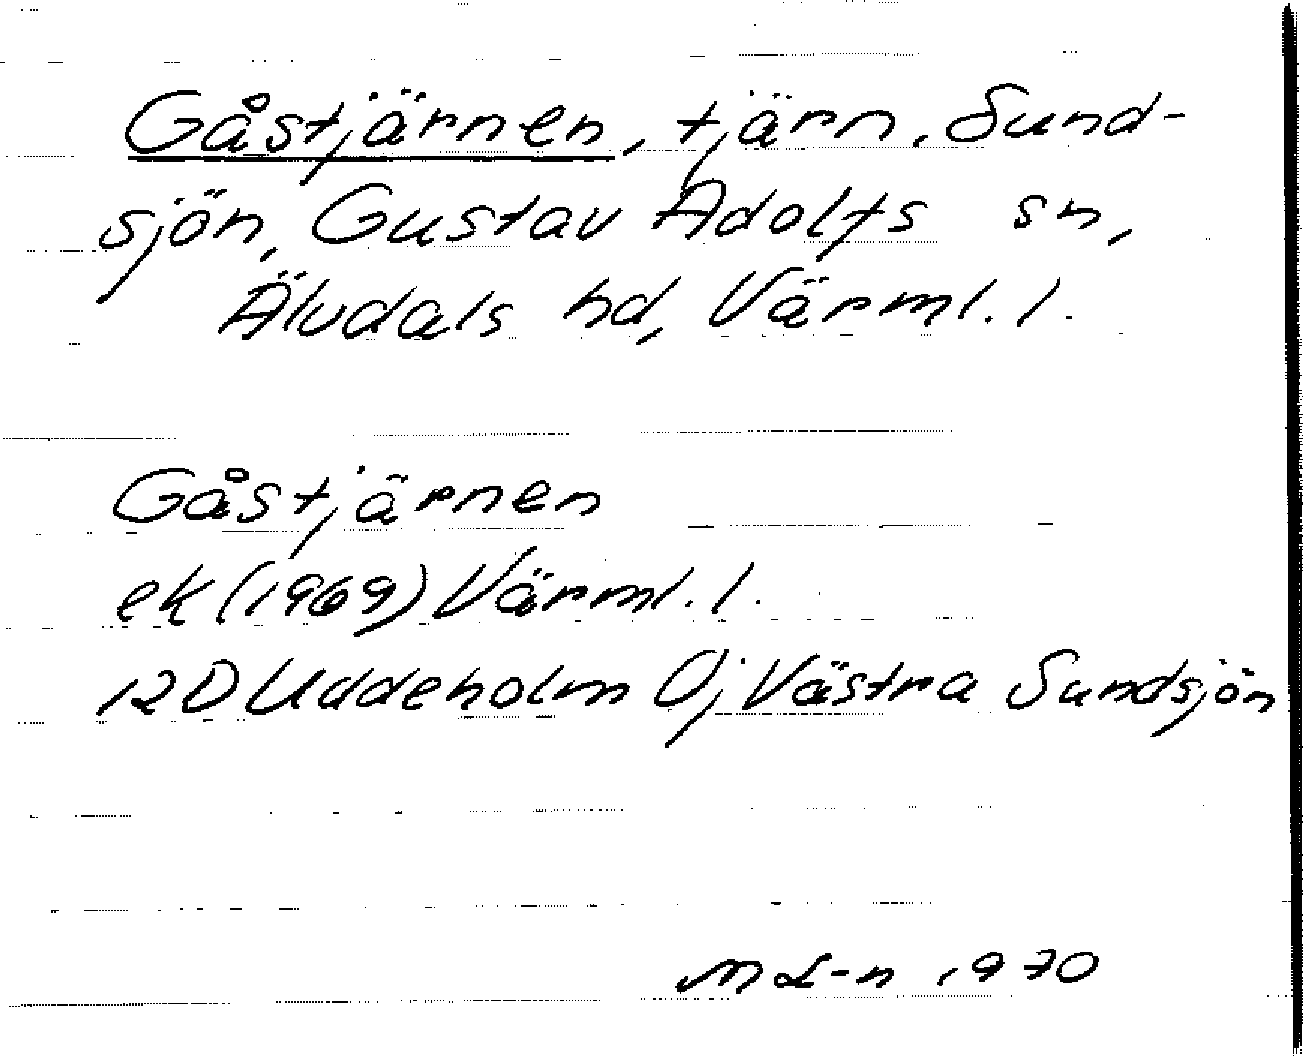 Gåstjärnen, tjärn, Sund-
sjön, Gustav Adolfs sn,
Älvdals hd, Värml. l.
Gåstjärnen
ek (1969) Värml. l.
12D Uddeholm 0j Västra Sundsjön
M L-n 1970